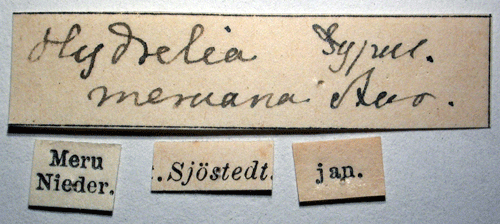 Hydrelia Typus.
meruana Aur.
Meru
Nieder.
. Sjöstedt.
jan.